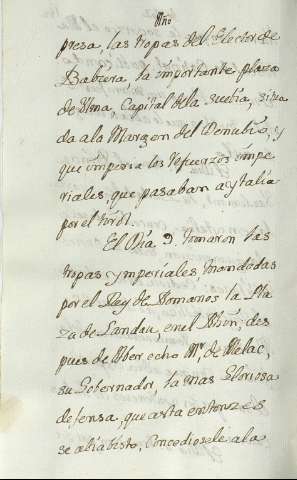 Año
presa, las tropas del Elector de
Babiera la importante plaza
de Vlma, Capital dela Suebia, situa
da ala Margen del Danubio, y
que impedia los refuerzos impe
riales, que pasaban a ytalia
por el tirol.
El Dia 9. tomaron las
tropas ymperiales mandadas
por el Rey de Romanos la Pla
za de Landau, en el Rhin; des
pues de aber echo Mr. de Melac,
su Gobernador, la mas Gloriosa
defensa, que asta entonzes
se abia bisto, Concediosele ala